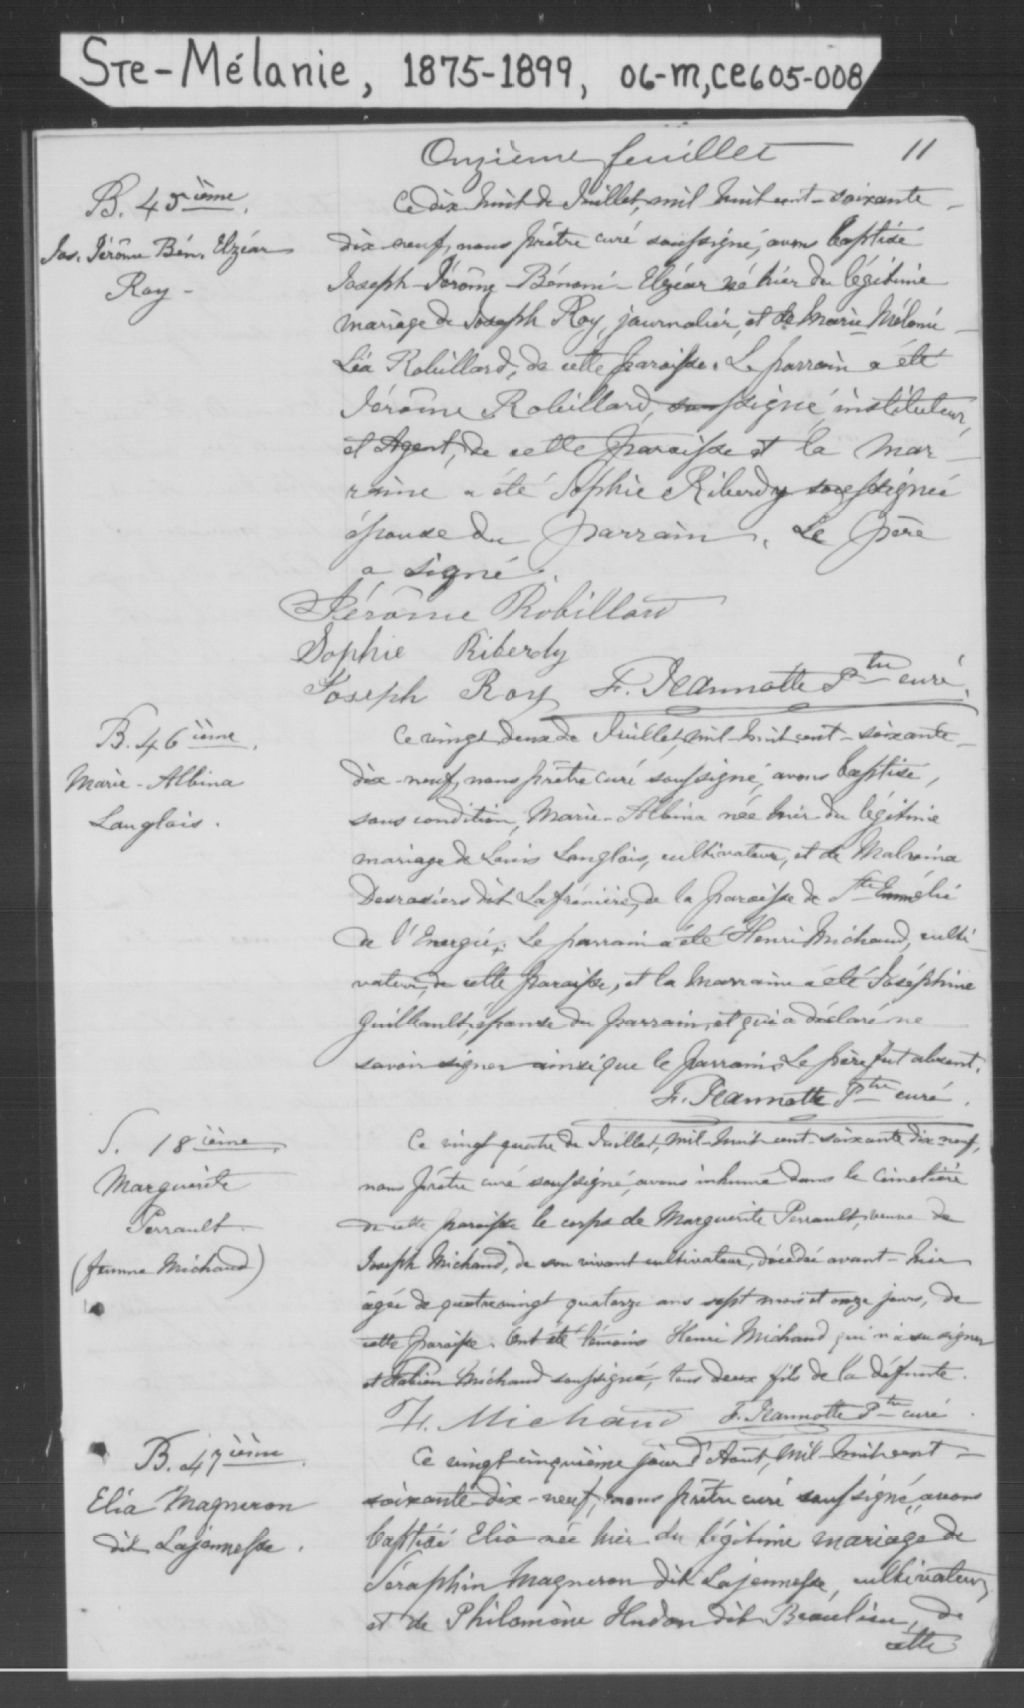 Ste-Mélanie, 1875-1899, 06-M, CE605-008
Onzième feuillet 11
B. 45ième.
Jos. Jérôme Bén. Elzéar
Roy -
Ce dix huit de Juillet, mil huit cent-soixante-
dix-neuf, nous prêtre curé soussigné, avons baptisé
Joseph-Jérôme-Bénoni-Elzéar né hier du légitime
mariage de Joseph Roy, journalier, et de Marie Mélanie-
Léa Robillard, de cette paroisse. Le parrain a été
Jérôme Robillard, soussigné, instituteur,
et Agent, de cette paroisse et la mar-
raine a été Sophie Riberdy soussignée
épouse du parrain. Le père
a signé.
Jérôme Robillard
Sophie Riberdy
Joseph Roy F. Jeannotte Ptre curé.
B. 46ième.
Marie-Albina
Langlois.
Ce vingt deux de Juillet, mil-huit-cent-soixante-
dix-neuf, nous prêtre curé soussigné, avons baptisé,
sous condition, Marie-Albina née hier du légitime
mariage de Louis Langlois, cultivateur, et de Malvina
Desrosiers dit Lafrénière, de la paroisse de Ste Emmélie
de l'Energie. Le parrain a été Henri Michaud, culti-
vateur, de cette paroisse, et la marraine a été Joséphine
Guilbault, épouse du parrain, et qui a déclaré ne
savoir signer ainsi que le parrain. Le père fut absent.
F. Jeannotte Ptre curé.
S. 18ième.
Marguerite
Perrault.
(femme Michaud)
Ce vingt quatre de Juillet, mil-huit-cent-soixante dix-neuf,
nous prêtre curé soussigné, avons inhumé dans le cimetière
de cette paroisse le corps de Marguerite Perrault, veuve de
Joseph Michaud, de son vivant cultivateur, décédée avant-hier
âgée de quatrevingt quatorze ans sept mois et onze jours, de
cette paroisse. Ont été témoins Henri Michaud qui n'a su signer
et Fabien Michaud soussigné, tous deux fils de la défunte.
F. Michaud F. Jeannotte Ptre curé.
B. 47ième.
Elia Magneron
dit Lajeunesse.
Ce vingt-cinquième jour d'Août, mil-huit-cent-
soixante-dix-neuf, nous prêtre curé soussigné, avons
baptisé Elia née hier du légitime mariage de
Séraphin Magneron dit Lajeunesse, cultivateur,
et de Philomène Hudon dit Beaulieu, de
cette